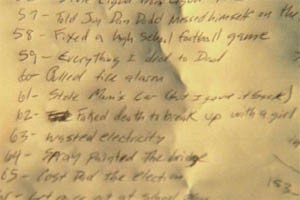 57- Told Joy Dan Dodd messed himself on the
58- Fixed a high school football game
59- Everything I did to Dodd
60- Pulled fire alarm
61- Stole Mom's car (but I gave it back)
62- Faked death to break up with a girl
63- Wasted electricity
64- Spray painted the bridge
65- Cost Dad the election
at school
183